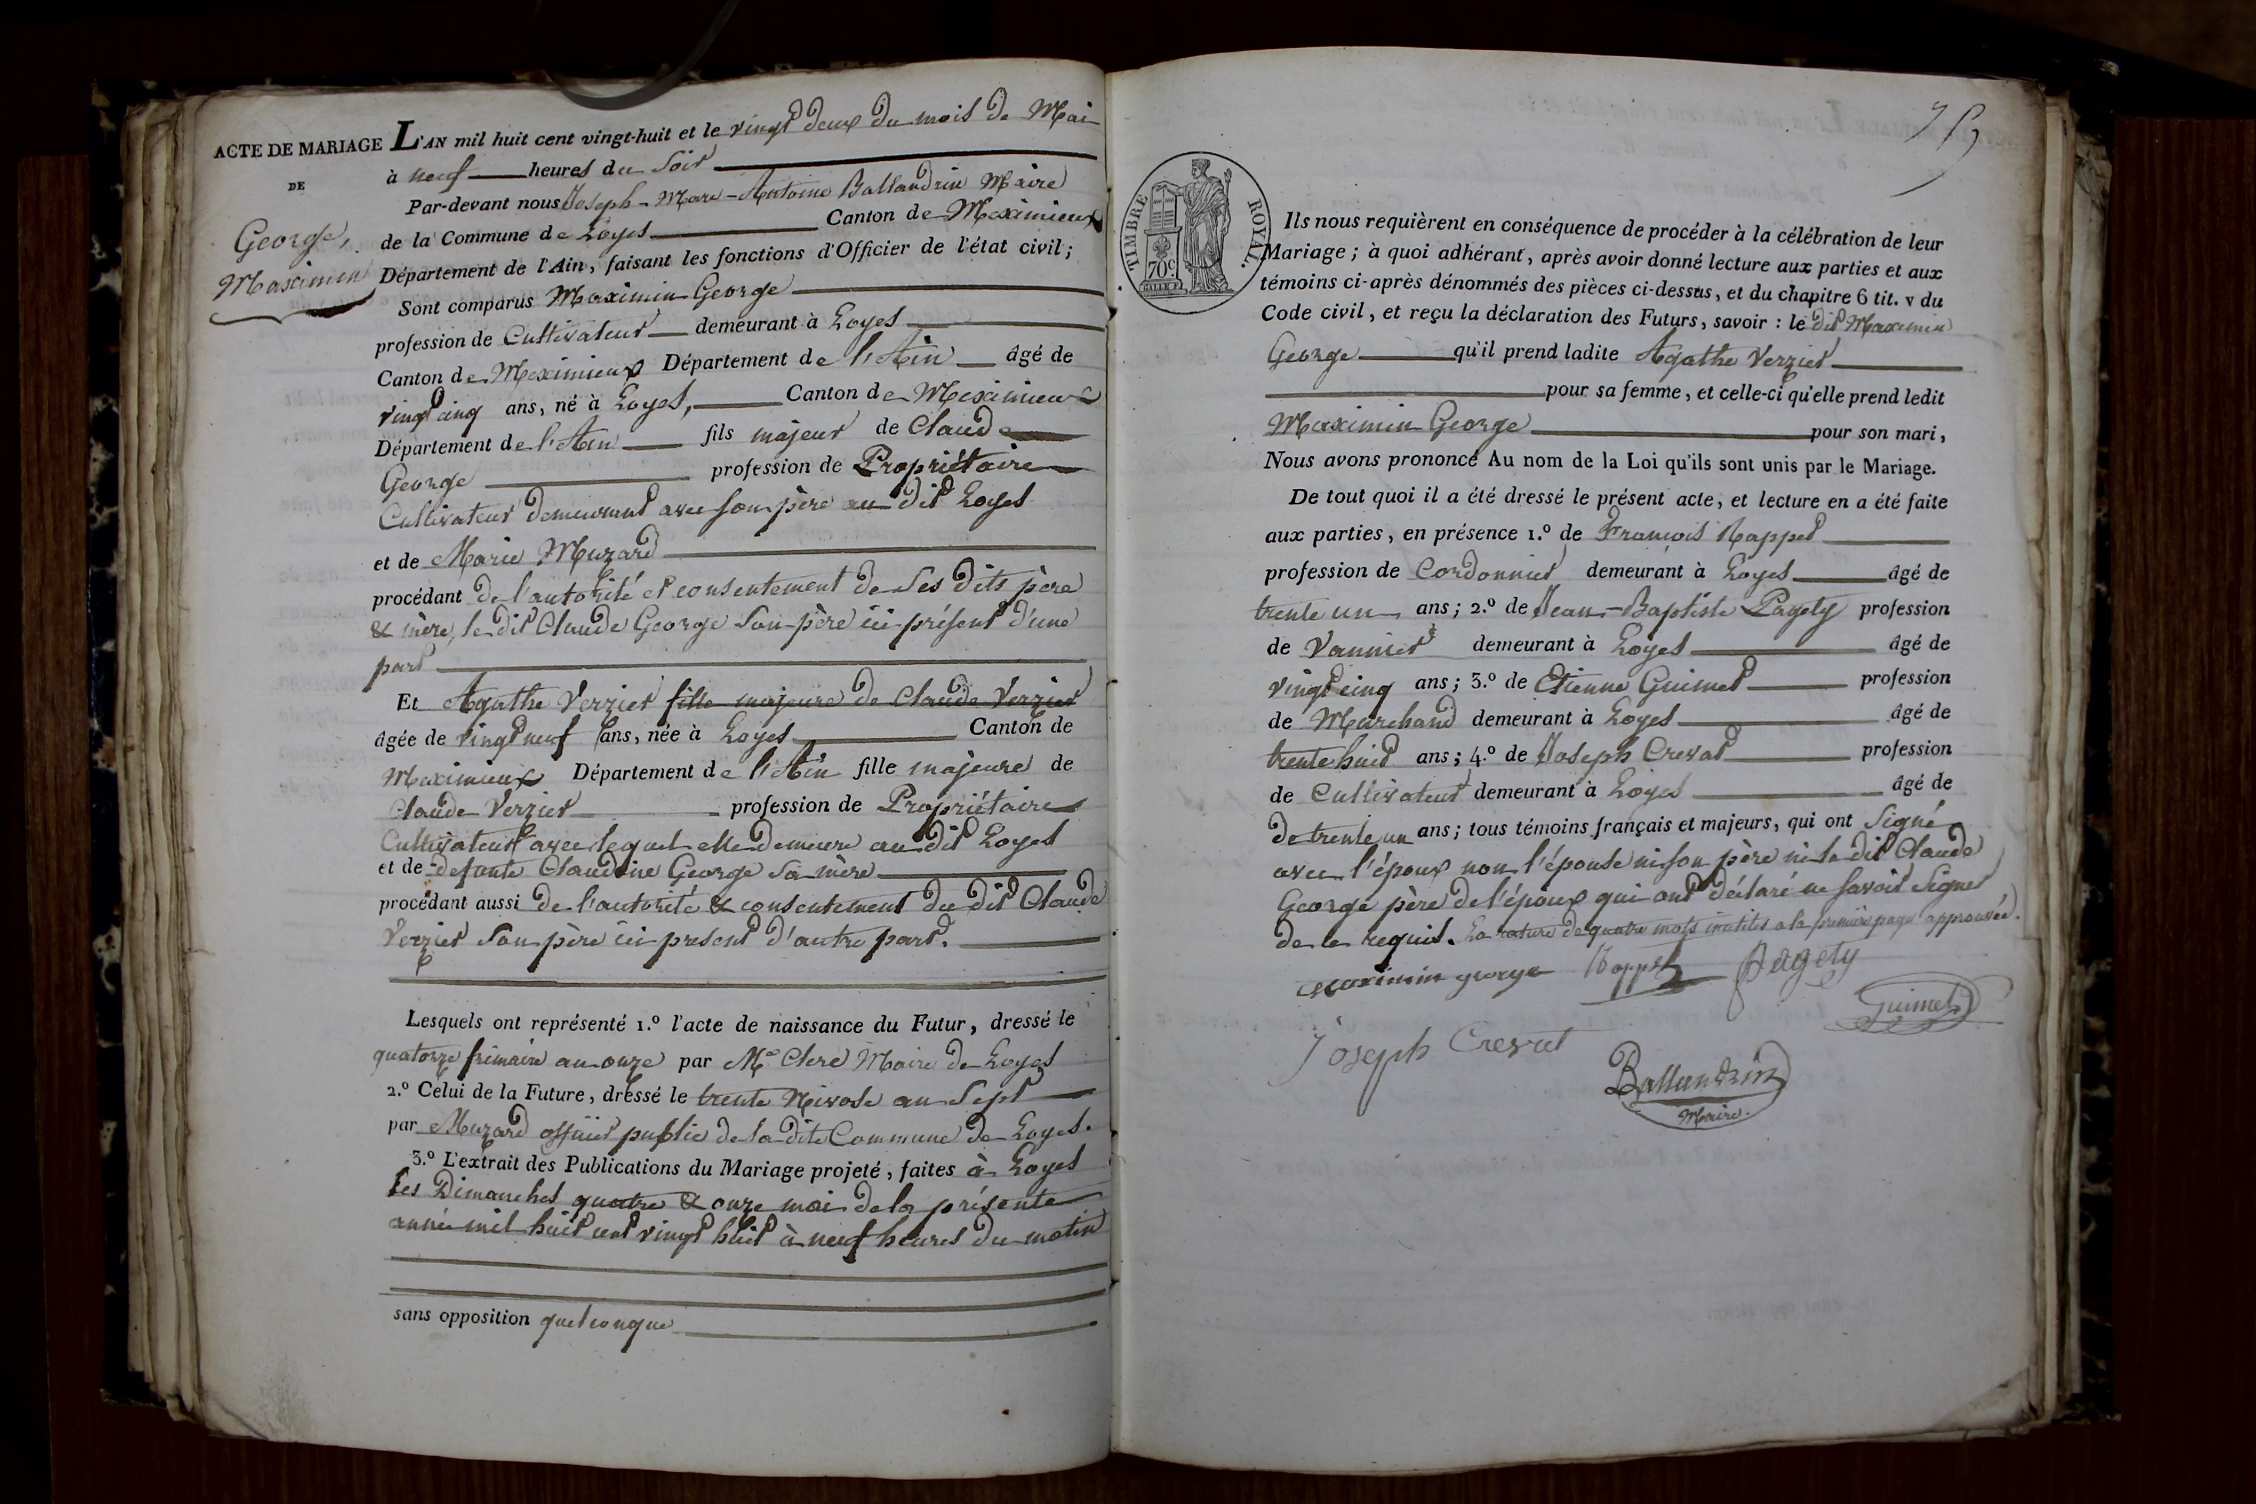 ACTE DE MARIAGE
DE
George,
Maximin
L'AN mil huit cent vingt-huit et le vingt deux du mois de Mai
à neuf heures du Soir
Par-devant nous Joseph-Marc-Antoine Ballandrin Maire
de la Commune de Loyes Canton de Meximieux
Département de l'Ain, faisant les fonctions d'Officier de l'état civil;
Sont comparus Maximin George
profession de Cultivateur demeurant à Loyes
Canton de Meximieux Département de l'Ain âgé de
vingt cinq ans, né à Loyes, Canton de Meximieux
Département de l'Ain fils majeur de Claude
George profession de Propriétaire
Cultivateur demeurant avec son père au dit Loyes
et de Marie Muzard
procédant de l'autorité et consentement de Ses dits père
& mère, le dit Claude George Son père ici présent d'une
part
Et Agathe Verzier fille majeure de Claude Verzier
âgée de vingt neuf ans, née à Loyes Canton de
Meximieux Département de l'Ain fille majeure de
Claude Verzier profession de Propriétaire
Cultivateur avec lequel elle demeure au dit Loyes
et de defunte Claudine George sa mère
procédant aussi de l'autorité & consentement du dit Claude
Verzier Son père ici present d'autre part.
Lesquels ont représenté 1.º l'acte de naissance du Futur, dressé le
quatorze frimaire an onze par Me Clerc Maire de Loyes
2.º Celui de la Future, dressé le trente Nivose an Sept
par Muzard officier public de la dite Commune de Loyes.
3.º L'extrait des Publications du Mariage projeté, faites à Loyes
les Dimanches quatre & onze mai de la présente
année mil huit cent vingt huit à neuf heures du matin
sans opposition quelconque
TIMBRE ROYAL.
70c
Ils nous requièrent en conséquence de procéder à la célébration de leur
Mariage; à quoi adhérant, après avoir donné lecture aux parties et aux
témoins ci-après dénommés des pièces ci-dessus, et du chapitre 6 tit. v du
Code civil, et reçu la déclaration des Futurs, savoir: le dit Maximin
George qu'il prend ladite Agathe Verzier
pour sa femme, et celle-ci qu'elle prend ledit
Maximin George pour son mari,
Nous avons prononcé Au nom de la Loi qu'ils sont unis par le Mariage.
De tout quoi il a été dressé le présent acte, et lecture en a été faite
aux parties, en présence 1.º de François Rappet
profession de Cordonnier demeurant à Loyes âgé de
trente un ans; 2.º de Jean-Baptiste Pagety profession
de Vannier demeurant à Loyes âgé de
vingt cinq ans; 3.º de Etienne Guimet profession
de Marchand demeurant à Loyes âgé de
trente huit ans; 4.º de Joseph Crevat profession
de Cultivateur demeurant à Loyes âgé de
de trente un ans; tous témoins français et majeurs, qui ont Signé
avec l'époux non l'épouse ni son père ni le dit Claude
George père de l'époux qui ont déclaré ne savoir Signer
de ce requis. La rature de quatre mots inutiles a la première page approuvée.
maximin george Rappet Pagety
Guimet
Joseph Crevat
Ballandrin
Maire.